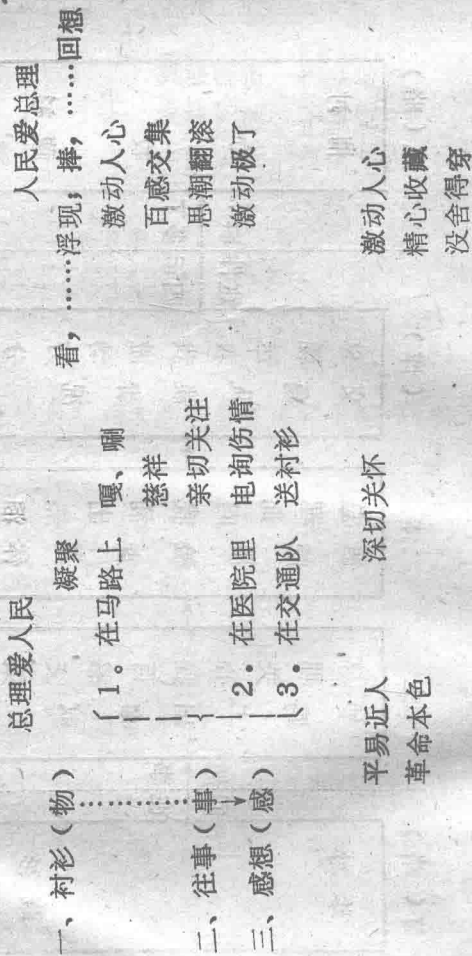 总理爱人民 人民爱总理
一、衬衫（物） 凝聚 看，……浮现；捧，……回想
1。在马路上 嘎、唰 激动人心
慈祥 百感交集
二、往事（事） 亲切关注 思潮翻滚
2。在医院里 电询伤情 激动极了
三、感想（感） 3。在交通队 送衬衫
平易近人 深切关怀 激动人心
革命本色 精心收藏
没舍得穿